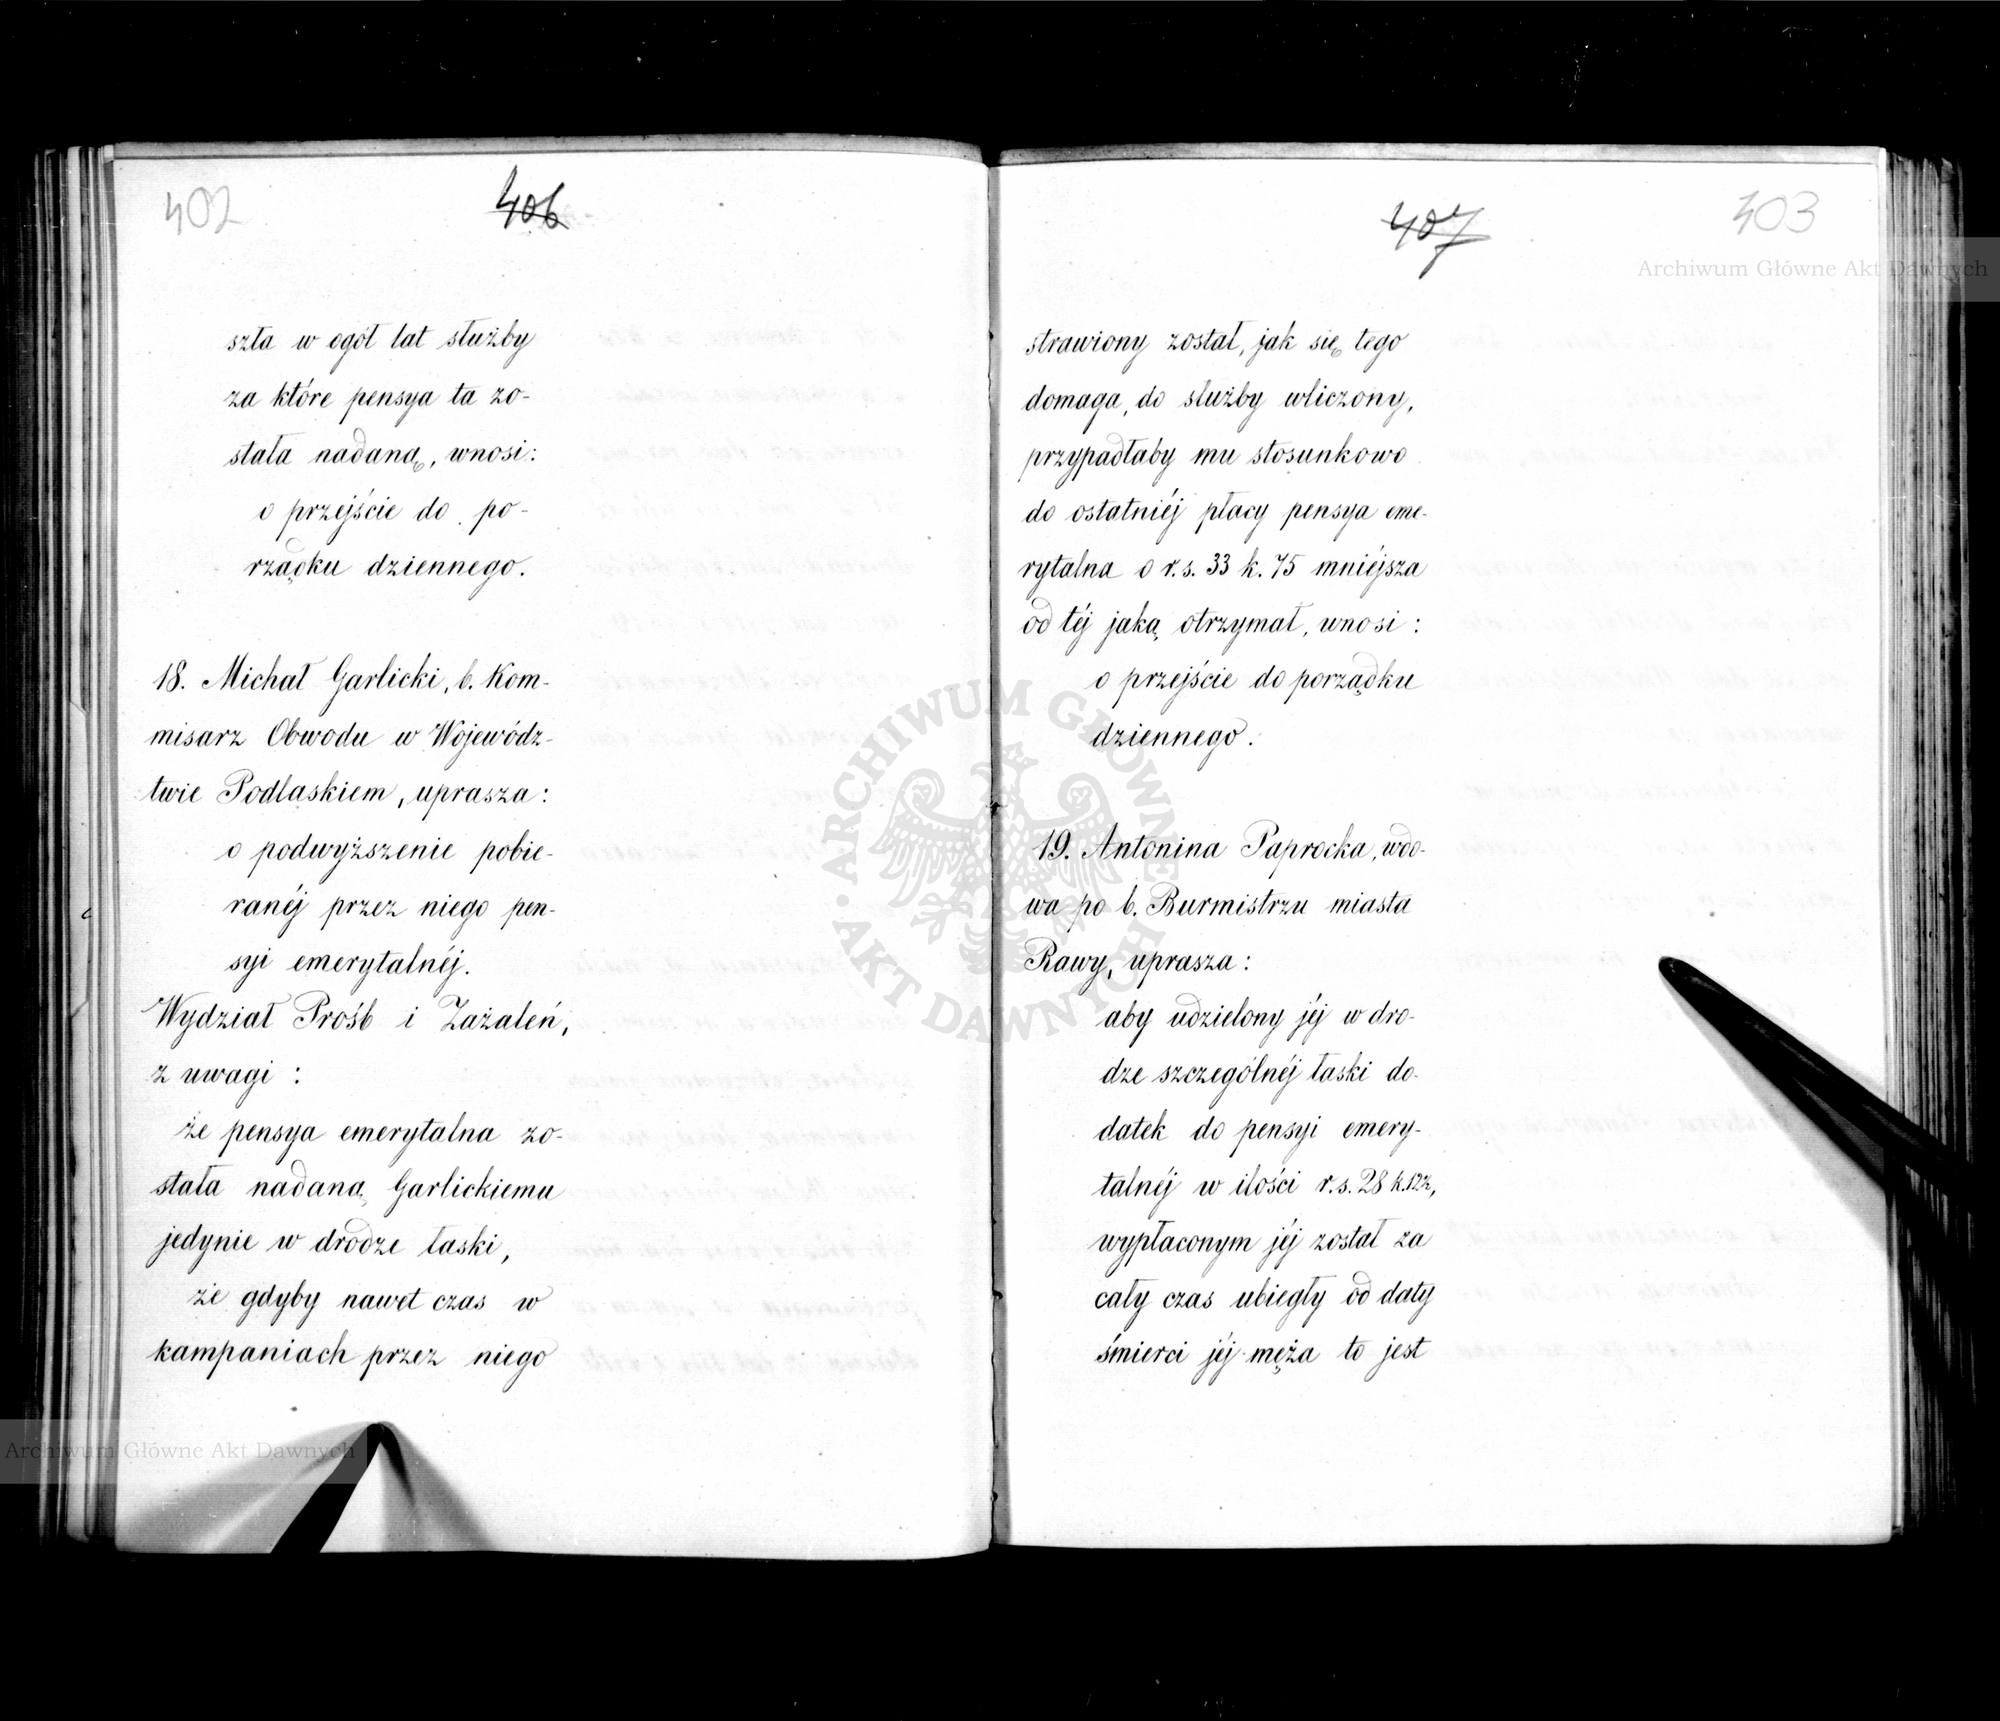 402
406
szła w ogół lat służby
za które pensya ta zo-
stała nadaną, wnosi:
o przejście do po-
rządku dziennego.
18. Michał Garlicki, b. Kom-
misarz Obwodu w Wojewódz-
twie Podlaskiem, uprasza:
o podwyższenie pobie-
ranéj przez niego pen-
syi emerytalnéj.
Wydział Próśb i Zażaleń,
z uwagi:
że pensya emerytalna zo-
stała nadaną Garlickiemu
jedynie w drodze łaski,
że gdyby nawet czas w
kampaniach przez niego
407
403
strawiony został, jak się tego
domaga, do służby wliczony,
przypadłaby mu stosunkowo
do ostatniéj płacy pensya eme-
rytalna o r.s. 33 k. 75 mniéjsza
od téj jaką otrzymał, wnosi:
o przejście do porządku
dziennego.
19. Antonina Paprocka, wdo-
wa po b. Burmistrzu miasta
Rawy, uprasza:
aby udzielony jéj w dro-
dze szczególnéj łaski do-
datek do pensyi emery-
talnéj w ilości r.s. 28 k.
wypłaconym jéj został za
cały czas ubiegły od daty
śmierci jéj męża to jest
Archiwum Główne Akt Dawnych
ARCHIWUM GŁÓWNE AKT DAWNYCH
Archiwum Główne Akt Dawnych